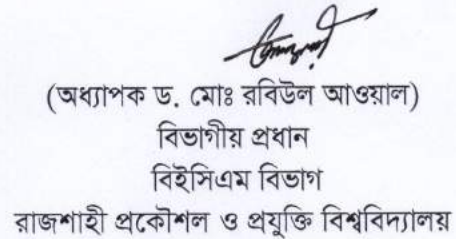 (অধ্যাপক ড. মোঃ রবিউল আওয়াল)
বিভাগীয় প্রধান
বিইসিএম বিভাগ
রাজশাহী প্রকৌশল ও প্রযুক্তি বিশ্ববিদ্যালয়